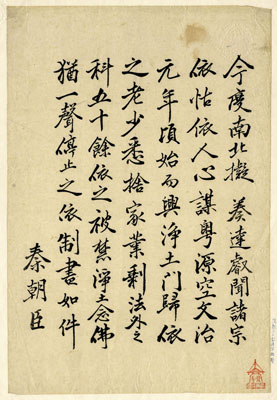 今度南北擬 奏達叡聞諸宗
依怙依人心謀粤源空文治
元年頃始而興淨土門歸依
之老少悉捨家業剩法外之
科五十餘依之被禁淨土念佛
猶一聲停止之依制書如件
秦朝臣